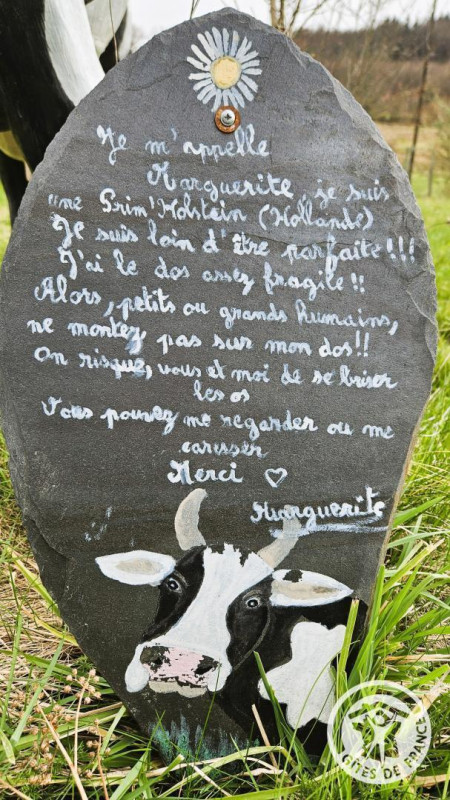 Je m'appelle
Marguerite, je suis
une Prim'Holstein (Hollande)
Je suis loin d'être parfaite!!!
J'ai le dos assez fragile!!
Alors, petits ou grands humains,
ne montez pas sur mon dos!!
On risque, vous et moi de se briser
les os
Vous pouvez me regarder ou me
caresser
Merci ♡
Marguerite
GÎTES DE FRANCE